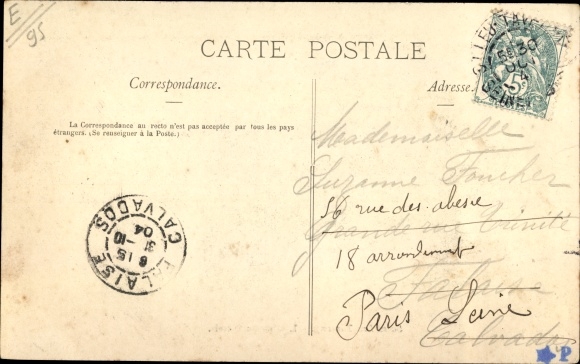 E/95
CARTE POSTALE
Correspondance.
Adresse.
La Correspondance au recto n'est pas acceptée par tous les pays
étrangers. (Se renseigner à la Poste.)
Mademoiselle
Suzanne Foucher
56 rue des
Grande rue Trinité
18 arrondiment
Falaise
Paris Seine
Calvados
FALAISE
CALVADOS
8 15
31-10
04
SEINE
5c
P